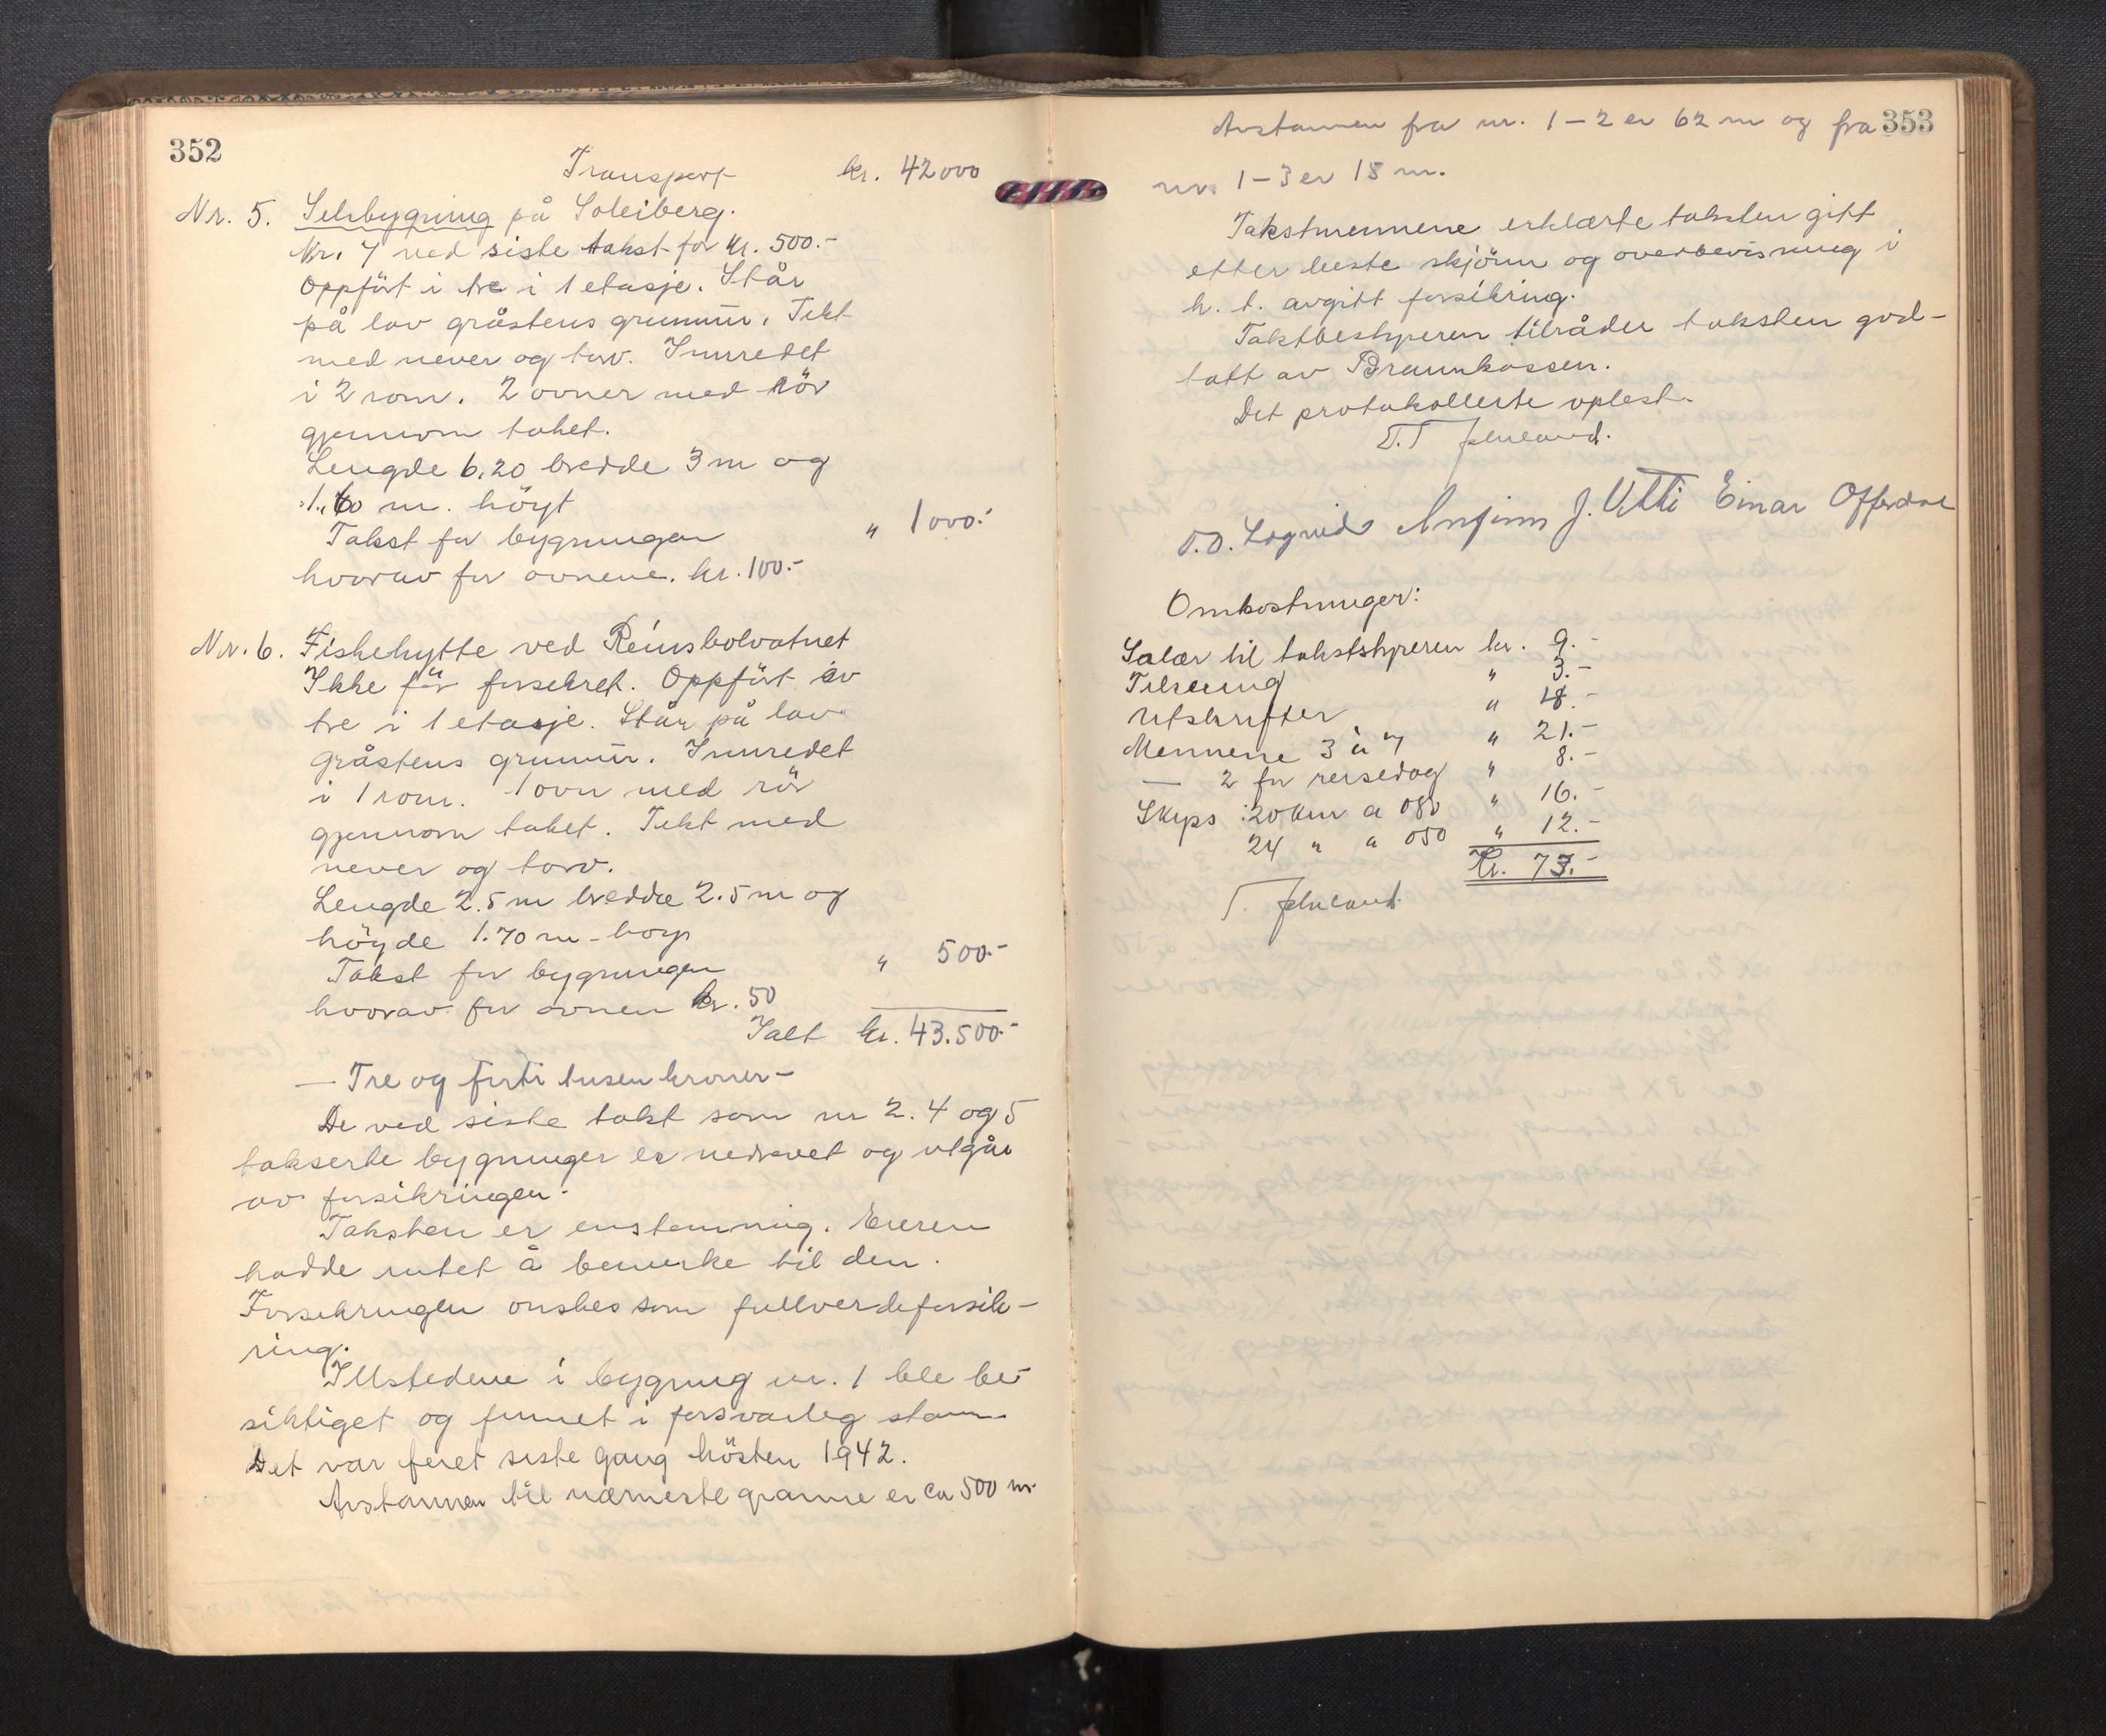 352
Transport kr. 42000
Nr. 5. Selsbygning på Soleiberg.
Nr. 7 ved siste takst for kr. 500.-
Oppført i tre i 1 etasje. Står
på lav gråstens grunnmur. Tekt
med never og torv. Innredet
i 2 rom. 2 ovner med rör
gjennom taket.
Lengde 6.20 bredde 3 m og
1.60 m. höyt
Takst for bygningen " 1000.-
hvorav for ovnene. kr. 100.-
Nr. 6. Fiskehytte ved Reinsbolvatnet
Ikke för forsikret. Oppfört av
tre i 1 etasje. Står på lav
gråstens grunnmur. Innredet
i 1 rom. 1 ovn med rör
gjennom taket. Tekt med
never og torv.
Lengde 2.5 m bredde 2.5 m og
höyde 1.70 m
Takst for bygningen " 500.-
hvorav for ovnen kr. 50
Ialt kr. 43.500.-
— Tre og førti tusen kroner —
De ved siste takst som nr 2. 4 og 5
takserte bygninger er nedrevet og utgår
av forsikringen.
Taksten er enstemmig. Eieren
hadde intet å bemerke til den.
Forsikringen onskes som fullverdeforsik-
ring.
Illstedene i bygning nr. 1 ble be-
siktiget og funnet i forsvarleg stann.
Det var feiet siste gang hösten 1942.
Avstannen til nærmeste granne er ca 500 m
353
Avstannen fra nr. 1 – 2 er 62 m og fra
nr. 1 – 3 er 18 m.
Takstmennene erklærte taksten gitt
etter beste skjönn og overbevisning i
h. t. avgitt forsikring.
Takstbestyreren tilråder taksten god-
tatt av Brannkassen.
Det protokollerte oplest.
O. O. Lognvik Anfinn J. Vetti Einar Offerdal
Omkostninger:
Salær til takstbestyreren kr. 9.-
" 3.-
Utskrifter " 18.-
Mennene 3 à 7 " 21.-
— 2 for reisedag " 8.-
Skyss : 20 km a 080 " 16.-
24 " a 050 " 12.-
Kr. 77.-